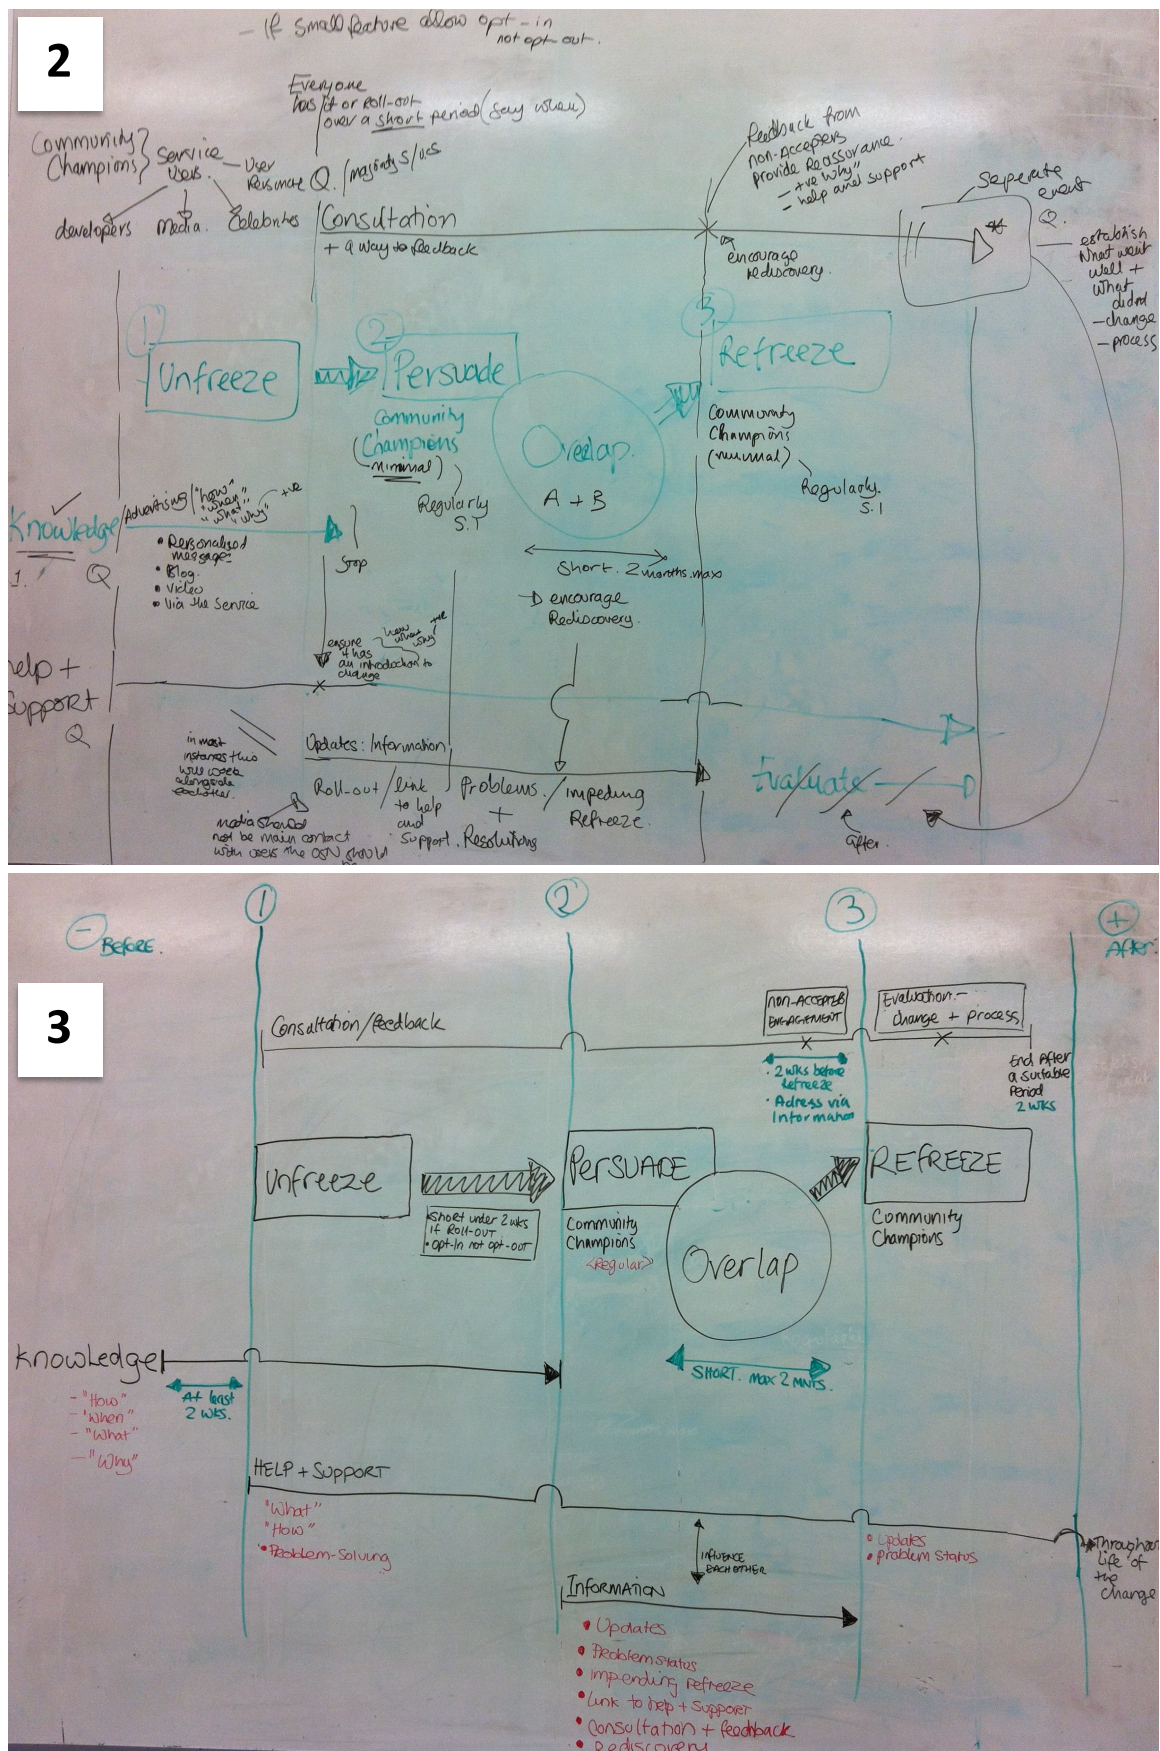 2
- If small feature allow opt-in
not opt out.
Everyone
has it or Roll-out
over a short period (say when)
Community
Champions
Service
Users.
User
Q.
developers
Media.
Celebrites
Consultation
+ a way to feedback
Feedback from
non-Accepters
provide Reassurance.
- +ve "why"
- help and support
encourage
rediscovery.
Seperate
event
Q.
establish
What went
well +
what
didn't
- change
- process
1
Unfreeze
2
Persuade
Community
Champions
(minimal)
Regularly
S.T
Overlap.
A + B
short. 2 months.max
encourage
Rediscovery.
3
Refreeze
Community
Champions
(minimal)
Regularly.
S.I
Knowledge
1.
Q
Advertising/"how"
"when"
"what"
"why"
+ve
• Personalised
message.
• Blog.
• Video
• Via the Service
Stop
ensure
it has
an introduction to
change
how
what
why
+ve
help +
Support
Q
in most
instances this
will work
alongside
eachother.
Updates: Information
Roll-out / link
to help
and
Support.
Problems. /
+
Resolutions
impeding
Refreeze.
media should
not be main contact
with users the OSN should
Evaluate
after.
3
- Before.
1
2
3
+
After.
Consultation/feedback
NON-ACCEPTER
ENGAGEMENT
Evaluation -
change + process
• 2 wks before
refreeze
• Adress via
Information
End After
a suitable
Period
2 WKS
Unfreeze
• Short under 2 wks
if Roll-out
• Opt-in not opt-out
PERSUADE
Community
Champions
<Regular>
Overlap
SHORT. max 2 MNTS.
REFREEZE
Community
Champions
Knowledge
- "How"
- "When"
- "What"
- "Why"
At least
2 wks.
HELP + SUPPORT
"What"
"How"
• Problem-Solving
INFLUENCE
EACH OTHER
• Updates
• Problem status
Throughout
life of
the
change
INFORMATION
• Updates
• Problem status
• impending refreeze
• Link to help + support
• Consultation + feedback
• Rediscovery